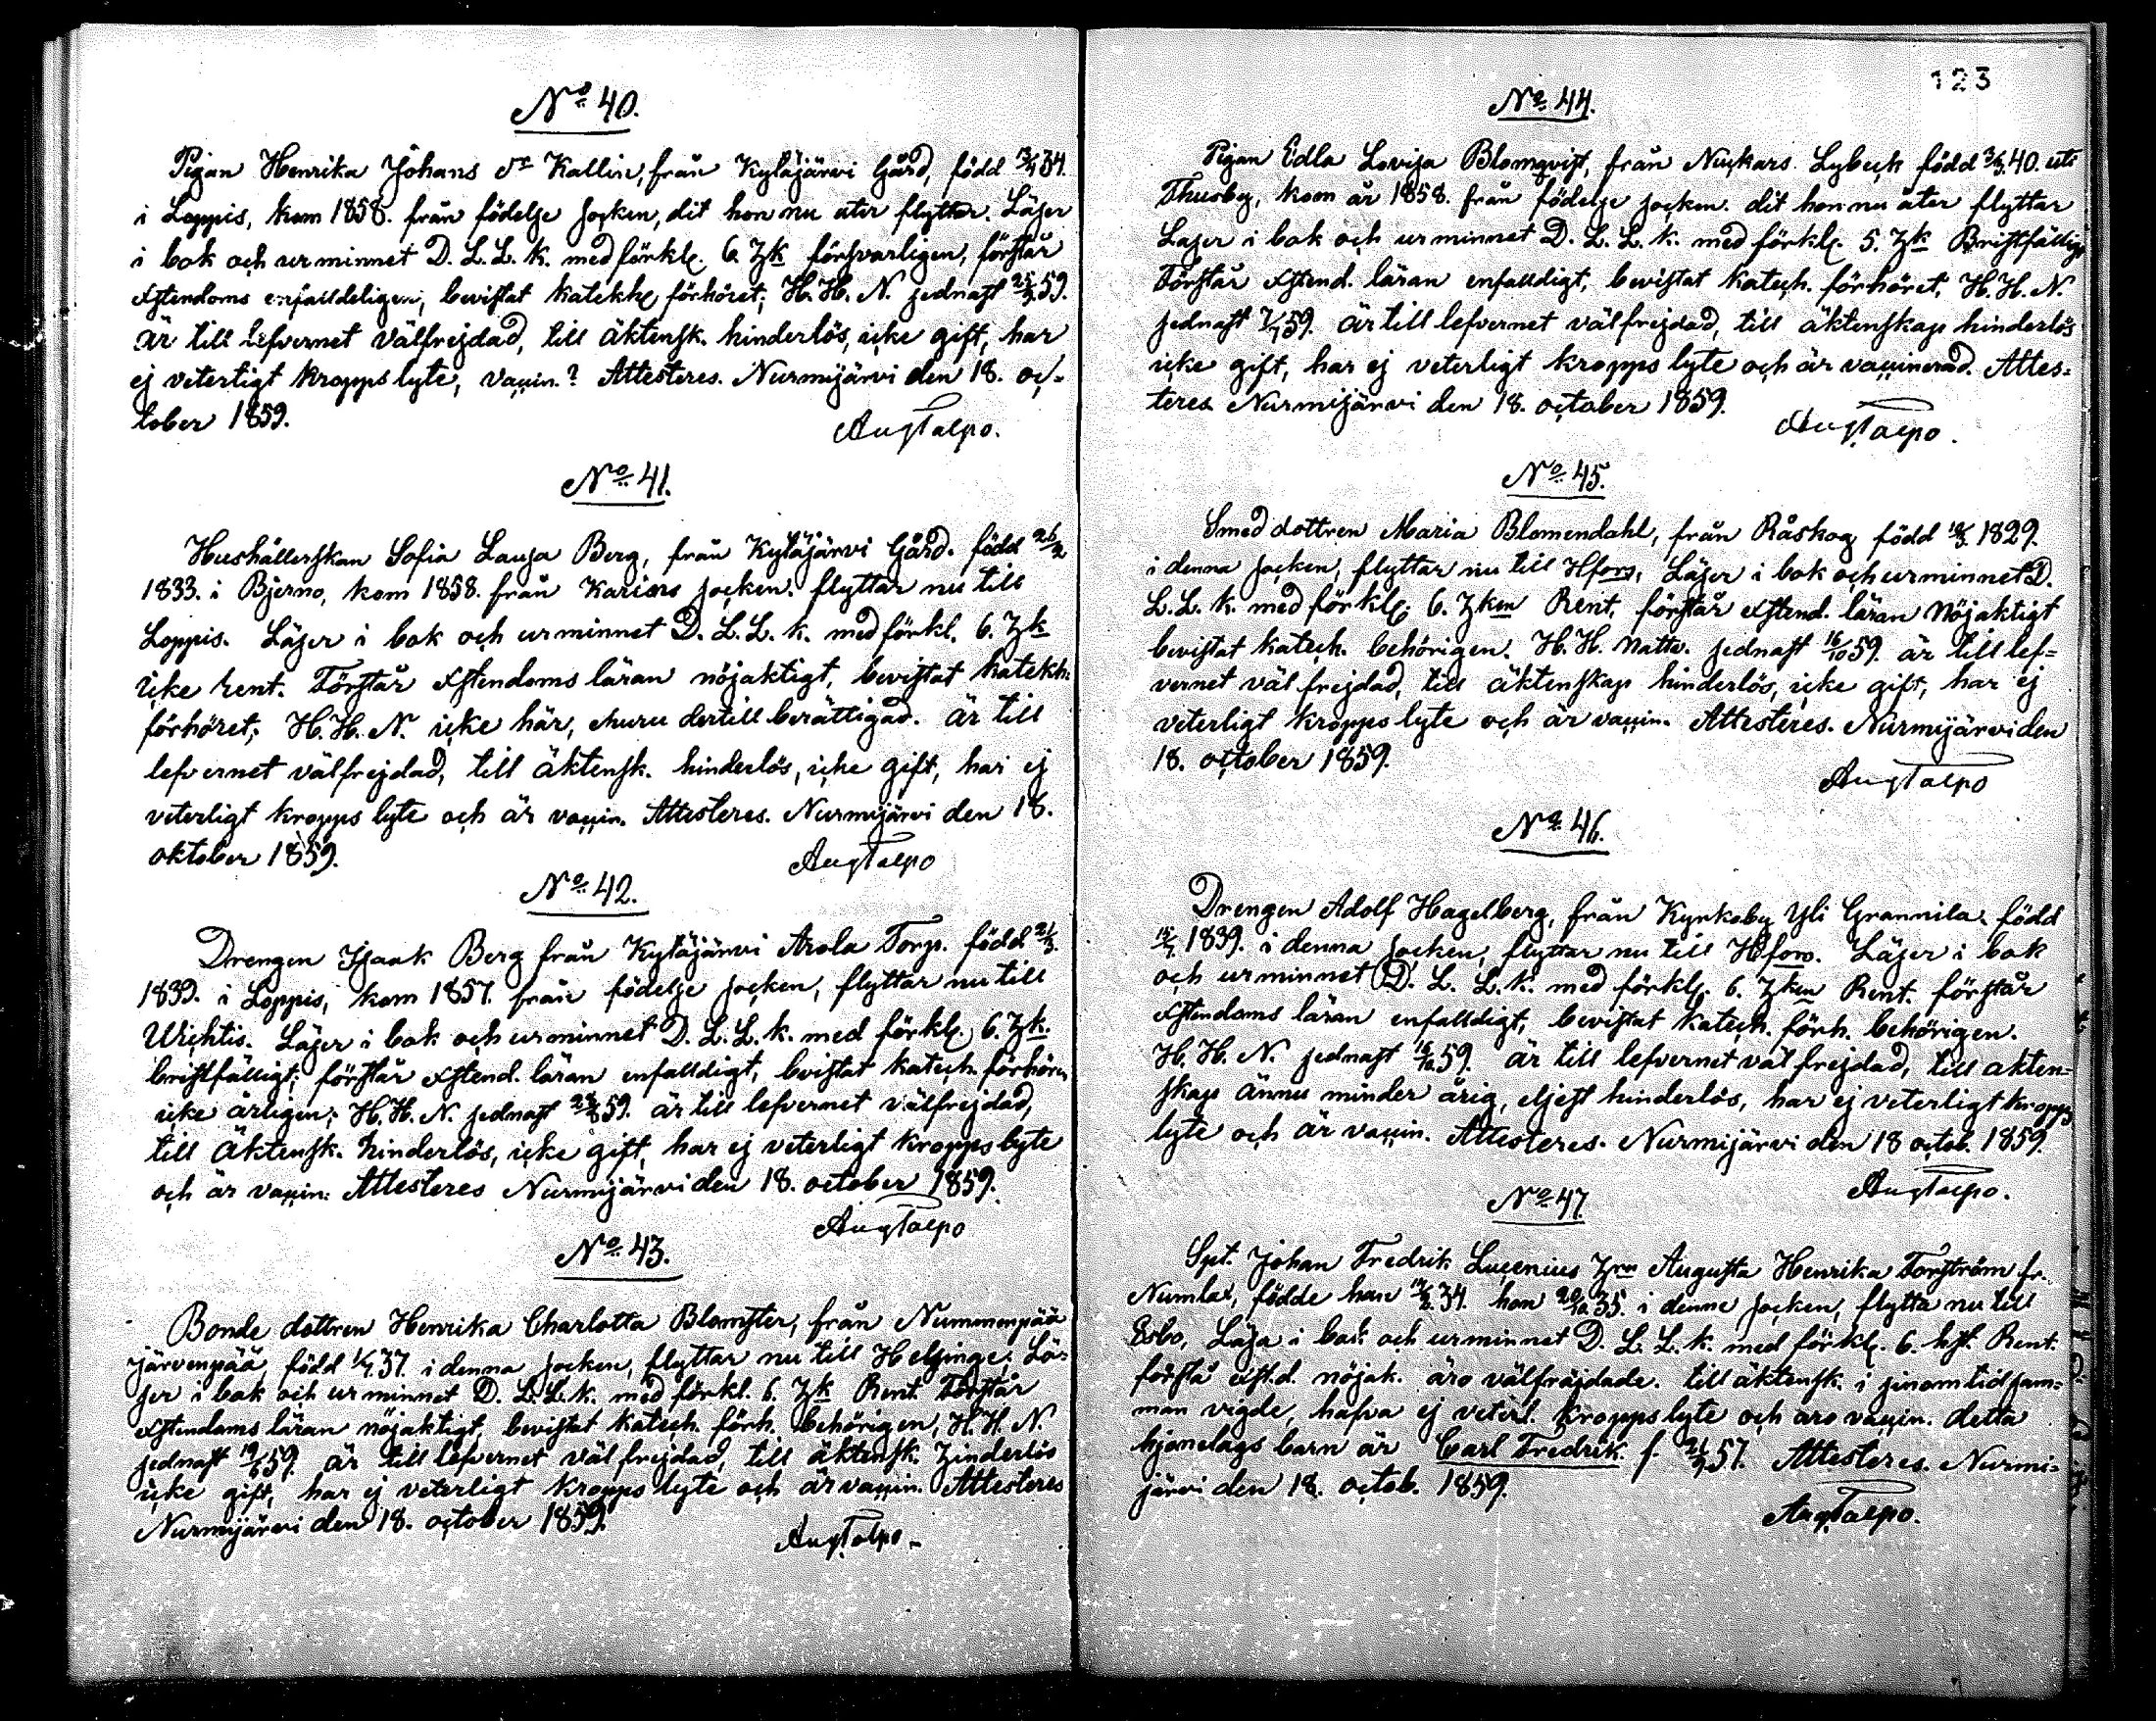 No 40.
Pigan Henrika Johans dr Kallin, från Kyläjärvi Gård, född 34.
i Loppis, kom 1858. från födelse socken, dit hon nu åter flyttar. Läser
i bok och ur minnet D. L. L. k. med förkl. 6. Zk försvarligen, förstår
Xstendoms enfaldeligen, bevistat katekh förhöret; H. H. N. sednast 59.
är till lefvernet välfrejdad, till äktensk. hinderlös, icke gift, har
ej veterligt kropps lyte, vaccin.? Attesteres. Nurmijärvi den 18. oc-
tober 1859.
Aug Talpo.
No 41.
Hushållerskan Sofia Lovisa Berg, från Kyläjärvi Gård. född
1833. i Bjerno, kom 1858. från Kariors socken. flyttar nu till
Loppis. Läser i bok och ur minnet D. L. L. k. med förkl. 6. Zk
icke rent. Förstår Xstendoms läran nöjaktigt, bevistat katekh.
förhöret; H. H. N. icke här, ehuru dertill berättigad. är till
lefvernet välfrejdad, till äktensk. hinderlös, icke gift, har ej
veterligt kropps lyte och är vaccin. Attesteres. Nurmijärvi den 18.
oktober 1859.
Aug Talpo
No 42.
Drengen Isaak Berg från Kyläjärvi Arola Torp. född
1839. i Loppis, kom 1857. från födelse socken, flyttar nu till
Wichtis. Läser i bok och ur minnet D. L. L. k. med förkl. 6. Zk.
bristfälligt; förstår Xstend. läran enfalldigt, bevistat katech. förhören
icke årligen; H. H. N. sednast 59. är till lefvernet välfrejdad,
till äktensk. hinderlös, icke gift, har ej veterligt kropps lyte
och är vaccin: Attesteres Nurmijärvi den 18. october 1859.
Aug Talpo
No 43.
Bonde dottren Henrika Charlotta Blomster, från Nummenpää
Järvenpää född 37. i denna socken, flyttar nu till Helsinge. Lä-
ser i bok och ur minnet D. L. L. k. med förkl. 6. Zk Rent. Förstår
Xstendoms läran nöjaktigt, bevistat katech. förh. behörigen, H. H. N.
sednast 59. är till lefvernet väl frejdad, till äktensk. hinderlös
icke gift, har ej veterligt kropps lyte och är vaccin. Attesteres
Nurmijärvi den 18. october 1859.
Aug Talpo
123
No 44.
Pigan Edla Lovisa Blomqvist, från Nuckars Lybeck född 40. uti
Thusby, kom år 1858. från födelse socken. dit hon nu åter flyttar
Laser i bok och ur minnet D. L. L. k. med förkl. 5. Zk Bristfälligt
Förstår Xstend. läran enfalldigt, bevistat katech. förhöret, H. H. N.
sednast 59. är till lefvernet välfrejdad, till äktenskap hinderlös
icke gift, har ej veterligt kropps lyte och är vaccinerad. Attes-
teres Nurmijärvi den 18. october 1859.
Aug Talpo.
No 45.
Smed dottren Maria Blomendahl, från Råskog född 1829.
i denna socken, flyttar nu till Hfors. Läser i bok och ur minnet D.
L. L. k. med förkl. 6. Zken Rent, förstår Xstend. läran nöjaktigt
bevistat katech. behörigen. H. H. Nattv. sednast 16/10 59. är till lef-
vernet väl frejdad, till äktenskap hinderlös, icke gift, har ej
veterligt kropps lyte och är vaccin. Attesteres. Nurmijärvi den
18. october 1859.
Aug Talpo
No 46.
Drengen Adolf Hagelberg, från Kyrkoby Yli Grannila. född
1839. i denna socken, flyttar nu till Hfors. Läser i bok
och ur minnet D. L. L. k. med förkl. 6. Zken Rent. förstår
Xstendoms läran enfalldigt, bevistat katech. förh. behörigen.
H. H. N. sednast 16/10 59. är till lefvernet väl frejdad, till äkten-
skap ännu minder årig, eljest hinderlös, har ej veterligt kropps
lyte och är vaccin. Attesteres. Nurmijärvi den 18 octob. 1859.
Aug Talpo.
No 47.
Spt. Johan Fredrik Lucenius Hru Augusta Henrika Forström fr.
Numlax, födde han 34. hon 20/10 35. i denne socken, flytta nu till
Esbo, Läsa i bok och ur minnet D. L. L. k. med förkl. 6. hst. Rent.
förstå Xst.d. nöjak. äro välfräjdade. till äktensk. i sinom tid sam-
man vigde, hafva ej veterl. kropps lyte och äro vaccin. detta
hjonelags barn är Carl Fredrik f. 57. Attesteres. Nurmi-
järvi den 18. octob. 1859.
Aug Talpo.